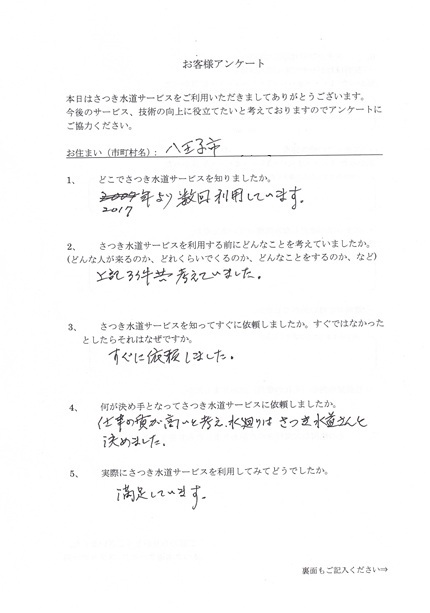 お客様アンケート
本日はさつき水道サービスをご利用いただきましてありがとうございます。
今後のサービス、技術の向上に役立てたいと考えておりますのでアンケートに
ご協力ください。
お住まい（市町村名）： 八王子市
1、 どこでさつき水道サービスを知りましたか。
年より数回利用しています。
2017
2、 さつき水道サービスを利用する前にどんなことを考えていましたか。
(どんな人が来るのか、どれくらいでくるのか、どんなことをするのか、など)
上記3件共考えていました。
3、 さつき水道サービスを知ってすぐに依頼しましたか。すぐではなかった
としたらそれはなぜですか。
すぐに依頼しました。
4、 何が決め手となってさつき水道サービスに依頼しましたか。
仕事の質が高いと考え、水廻りはさつき水道さんと
決めました。
5、 実際にさつき水道サービスを利用してみてどうでしたか。
満足しています。
裏面もご記入ください⇒